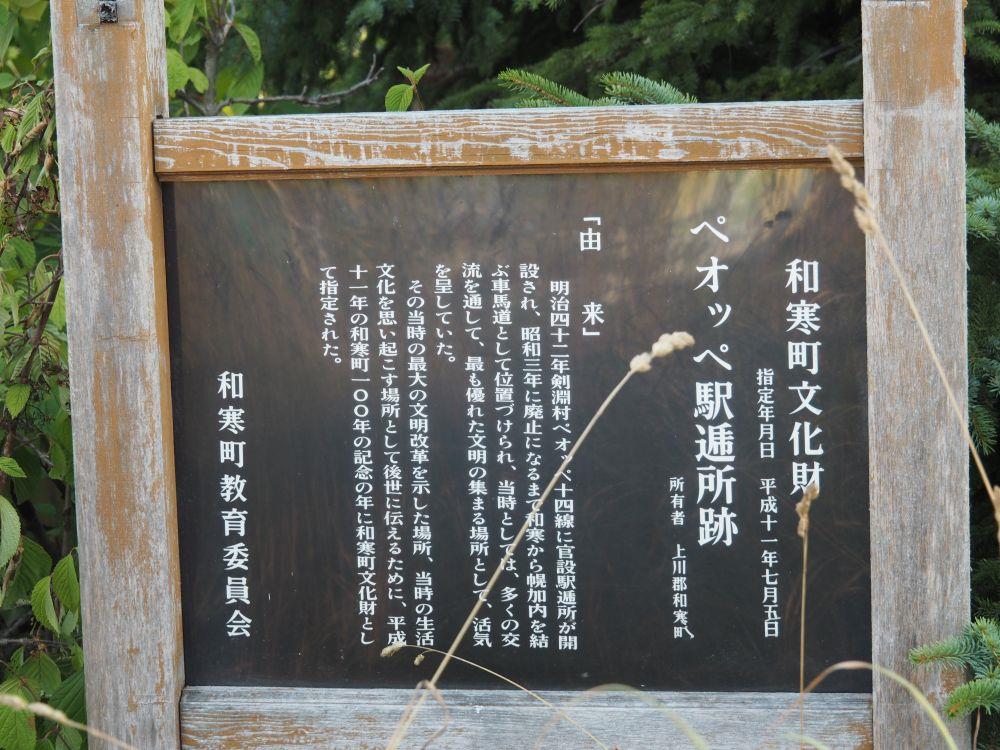 和寒町文化財
指定年月日　平成十一年七月五日
ペオッペ駅逓所跡
所有者　上川郡和寒町
「由　来」
明治四十二年剣淵村ペオッペ十四線に官設駅逓所が開
設され、昭和三年に廃止になるまで和寒から幌加内を結
ぶ車馬道として位置づけられ、当時としては、多くの交
流を通して、最も優れた文明の集まる場所として、活気
を呈していた。
その当時の最大の文明改革を示した場所、当時の生活
文化を思い起こす場所として後世に伝えるために、平成
十一年の和寒町一〇〇年の記念の年に和寒町文化財とし
て指定された。
和寒町教育委員会